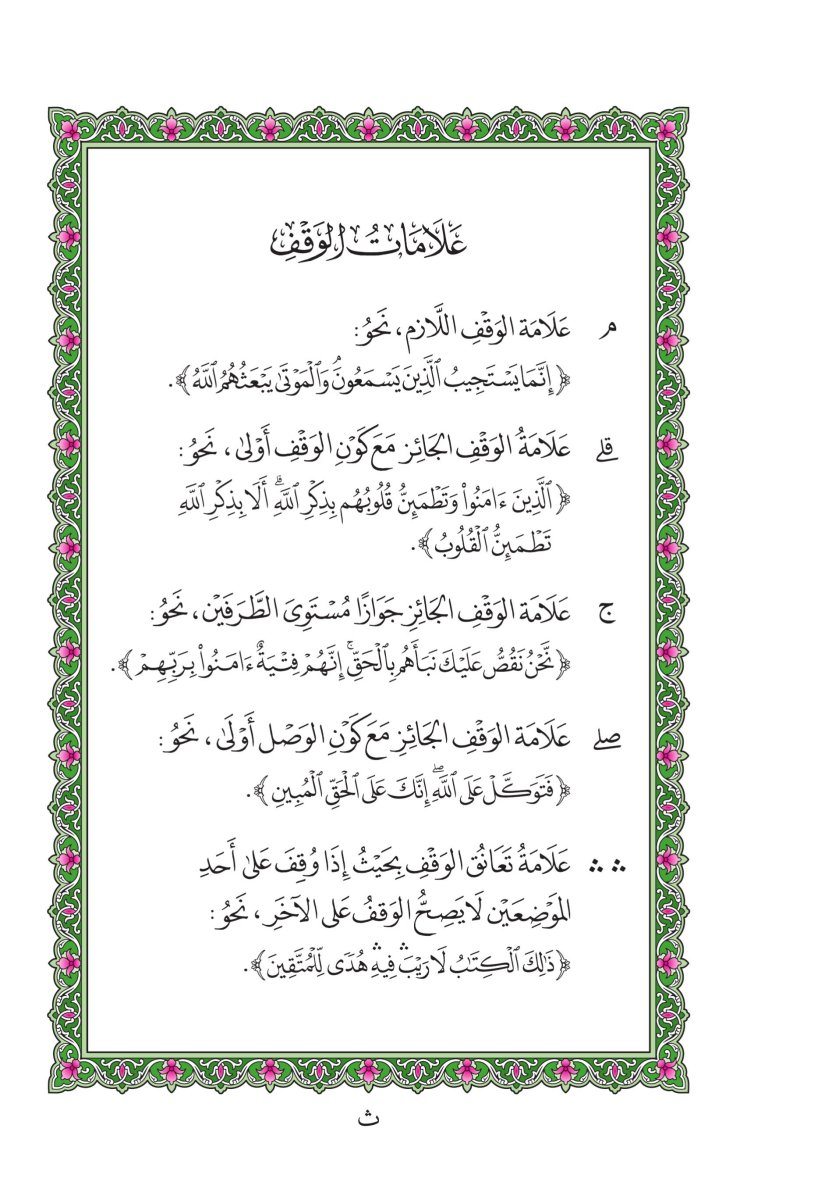 عَلَامَاتُ الوَقۡفِ
م عَلَامَة الوَقۡفِ اللَّازِم، نَحوُ:
﴿إِنَّمَا يَسۡتَجِيبُ ٱلَّذِينَ يَسۡمَعُونَۘ وَٱلۡمَوۡتَىٰ يَبۡعَثُهُمُ ٱللَّهُ﴾.
قلے عَلَامَةُ الوَقۡفِ الجَائِز مَعَ كَوۡنِ الوَقۡفِ أَوۡلىٰ، نَحوُ:
﴿ٱلَّذِينَ ءَامَنُواْ وَتَطۡمَئِنُّ قُلُوبُهُم بِذِكۡرِ ٱللَّهِۗ أَلَا بِذِكۡرِ ٱللَّهِ
تَطۡمَئِنُّ ٱلۡقُلُوبُ﴾.
ج عَلَامَة الوَقۡفِ الجَائِزِ جَوَازًا مُسۡتَوِيَ الطَّرَفَيۡن، نَحوُ:
﴿نَّحۡنُ نَقُصُّ عَلَيۡكَ نَبَأَهُم بِٱلۡحَقِّۚ إِنَّهُمۡ فِتۡيَةٌ ءَامَنُواْ بِرَبِّهِمۡ﴾.
صلے عَلَامَة الوَقۡفِ الجَائِزِ مَعَ كَوۡنِ الوَصۡل أَوۡلَىٰ، نَحوُ:
﴿فَتَوَكَّلۡ عَلَى ٱللَّهِۖ إِنَّكَ عَلَى ٱلۡحَقِّ ٱلۡمُبِينِ﴾.
∴ ∴ عَلَامَةُ تَعَانُق الوَقۡفِ بِحَيۡثُ إِذَا وُقِفَ عَلىٰ أَحَدِ
المَوۡضِعَيۡن لَا يَصِحُّ الوَقفُ عَلى الآخَرِ، نَحوُ:
﴿ذَٰلِكَ ٱلۡكِتَٰبُ لَا رَيۡبَۛ فِيهِۛ هُدٗى لِّلۡمُتَّقِينَ﴾.
ث